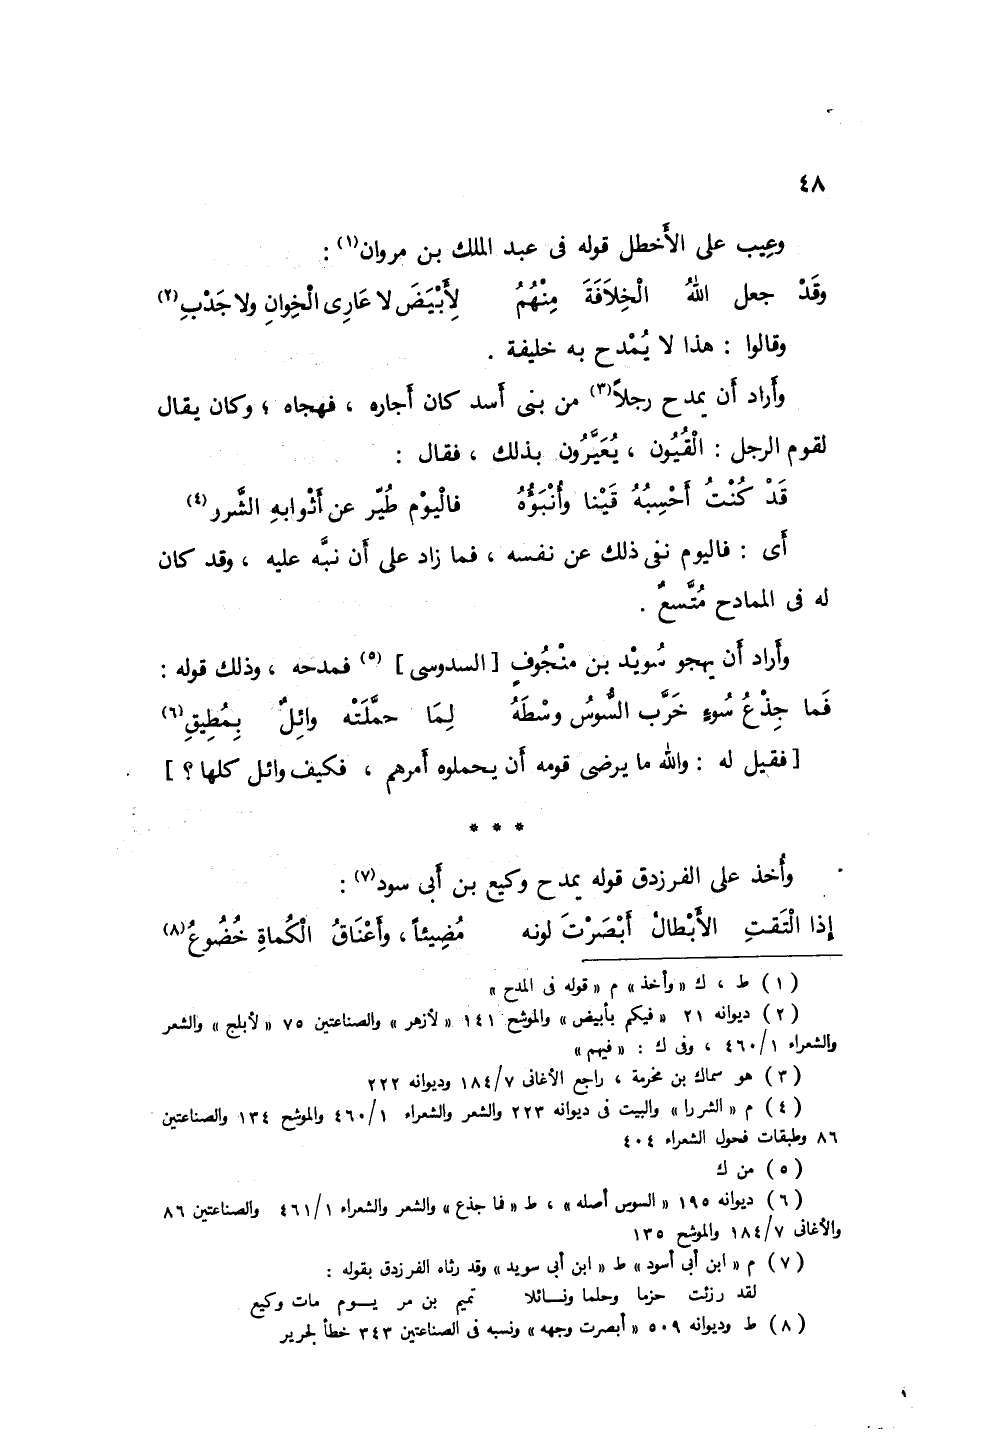 ٤٨
وعِيب على الأَخطل قوله فى عبد الملك بن مروان(١) :
وقَدْ جعل اللهُ الْخِلاَفَةَ مِنْهُمُ لِأَبْيَضَ لا عَارِى الْخِوانِ ولا جَدْبِ(٢)
وقالوا : هذا لا يُمْدح به خليفة .
وأَراد أَن يمدح رجلاً(٣) من بنى أَسد كان أَجاره ، فهجاه ؛ وكان يقال
لقوم الرجل : الْقُيُون ، يُعَيَّرُون بذلك ، فقال :
قَدْ كُنْتُ أَحْسِبُهُ قَيْنا وأُنْبَؤُهُ فالْيوْم طُيّر عن أَثْوابهِ الشَّرر(٤)
أَى : فاليوم نفى ذلك عن نفسه ، فما زاد على أَن نبَّه عليه ، وقد كان
له فى الممادح مُتَّسعٌ .
وأَراد أَن يهجو سُويْد بن منْجُوفٍ [ السدوسى ] (٥) فمدحه ، وذلك قوله :
فَما جِذْعُ سُوءٍ خَرَّب السُّوسُ وسْطَهُ لِمَا حمَّلَتْه وائِلٌ بِمُطِيقِ(٦)
[ فقيل له : والله ما يرضى قومه أَن يحملوه أَمرهم ، فكيف وائل كلها ؟ ]
* * *
وأُخذ على الفرزدق قوله يمدح وكيع بن أَبى سود(٧) :
إذا الْتَقتِ الأَبْطالْ أَبْصَرْتَ لونه مُضِيئاً ، وأَعْنَاقُ الْكُماةِ خُضُوعُ(٨)
(١) ط ، ك «وأخذ» م «قوله فى المدح»
(٢) ديوانه ٢١ «فيكم بأبيض» والموشح ١٤١ «لأزهر» والصناعتين ٧٥ «لأبلج» والشعر
والشعراء ٤٦٠/١ ، وفى ك : «فيهم»
(٣) هو سماك بن مخرمة ، راجع الأغانى ١٨٤/٧ وديوانه ٢٢٢
(٤) م «الشررا» والبيت فى ديوانه ٢٢٣ والشعر والشعراء ٤٦٠/١ والموشح ١٣٤ والصناعتين
٨٦ وطبقات فحول الشعراء ٤٠٤
(٥) من ك
(٦) ديوانه ١٩٥ «السوس أصله» ، ط «فا جذع» والشعر والشعراء ٤٦١/١ والصناعتين ٨٦
والأغانى ١٨٤/٧ والموشح ١٣٥
(٧) م «ابن أبى أسود» ط «ابن أبى سويد» وقد رثاه الفرزدق بقوله :
لقد رزئت حزما وحلما ونـــائلا تميم بن مر يـــوم مات وكيع
(٨) ط وديوانه ٥٠٩ «أبصرت وجهه» ونسبه فى الصناعتين ٣٤٣ خطأ لجرير